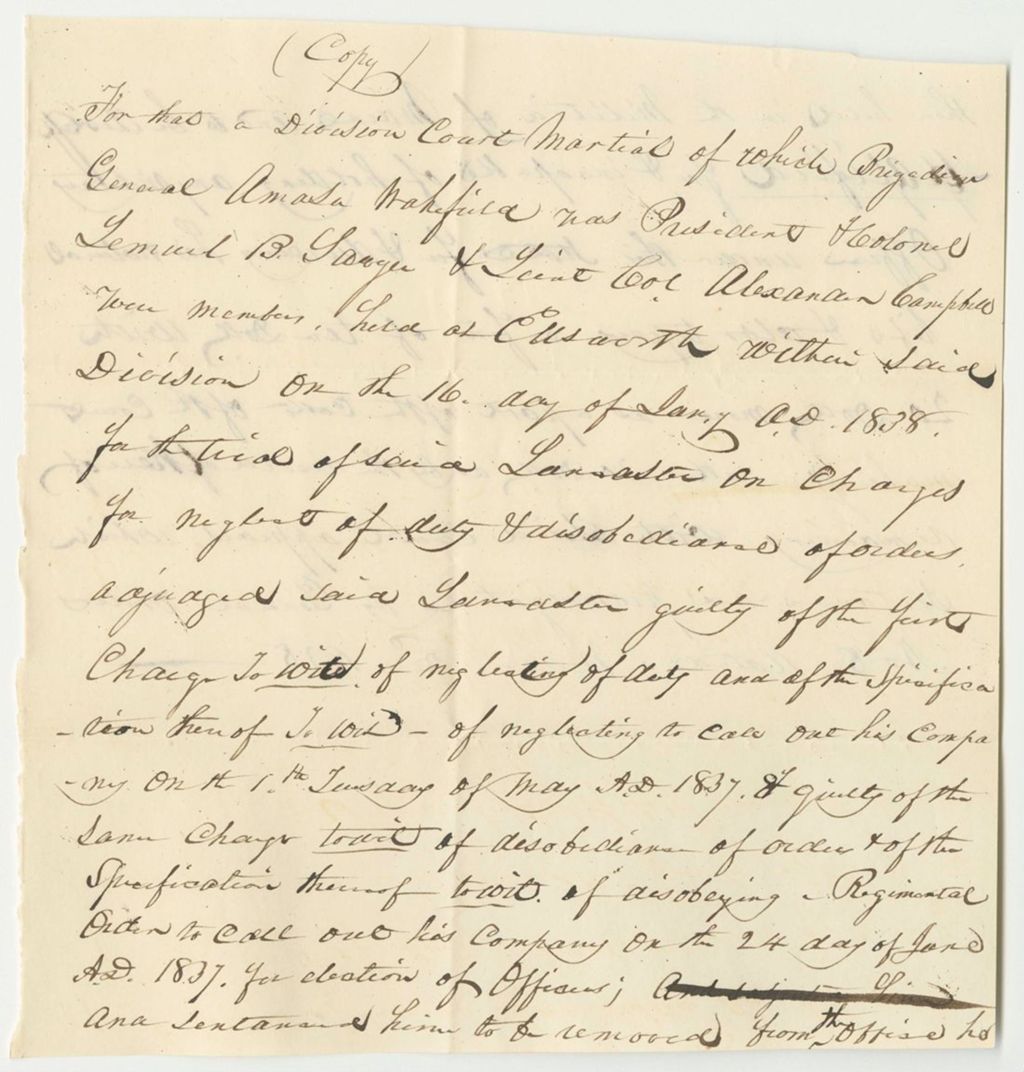 (Copy)
For that a Division Court Martial of which Brigadier
General Amasa Wakefield was President & Colonel
Lemuel B. Sawyer & Lieut Col. Alexander Campbell
were members, held at Ellsworth within said
Division on the 16. day of Jany A.D. 1838.
for the trial of said Lancaster on Charges
for neglect of duty & disobedianse of orders.
adjudged said Lancaster guilty of the first
Charge To wit of neglecting of duty and of the Specifica
-tion thereof To wit - of neglecting to call out his Compa
-ny on th 1.th Tuesday of May A.D. 1837. & guilty of the
same Charge towit of disobedianse of order & of the
Specification thereof towit. of disobeying a Regimental
Order to call out his Company on the 24 day of June
A.D. 1837. for election of Officers; And
and sentansed him to be removed from the Office he